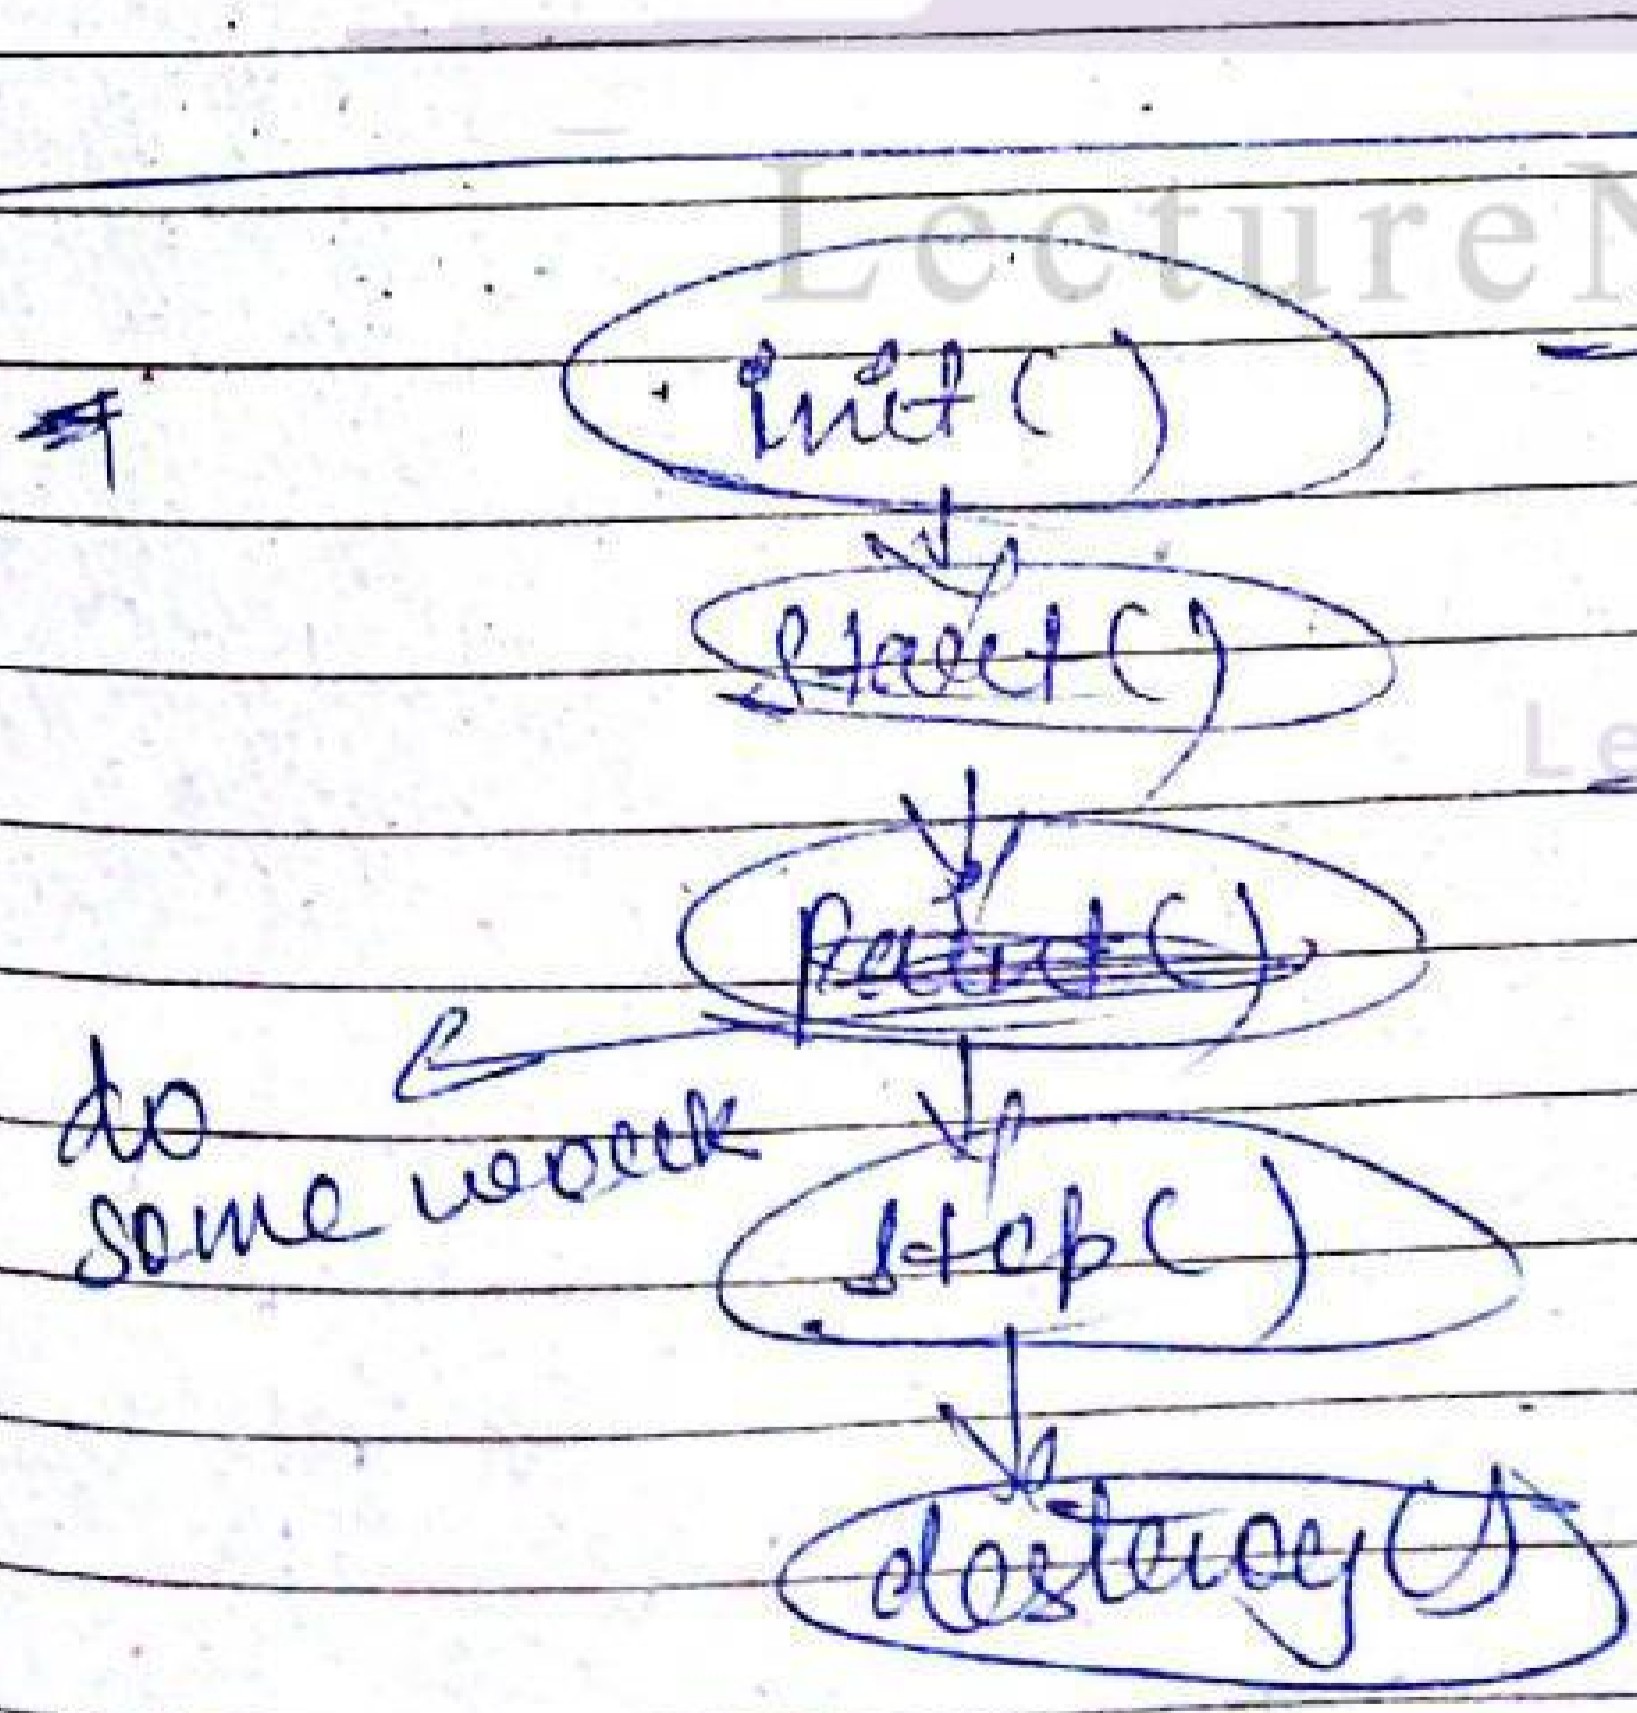 LectureN
init()
start()
Le
paint()
do
some work
stop()
destroy()